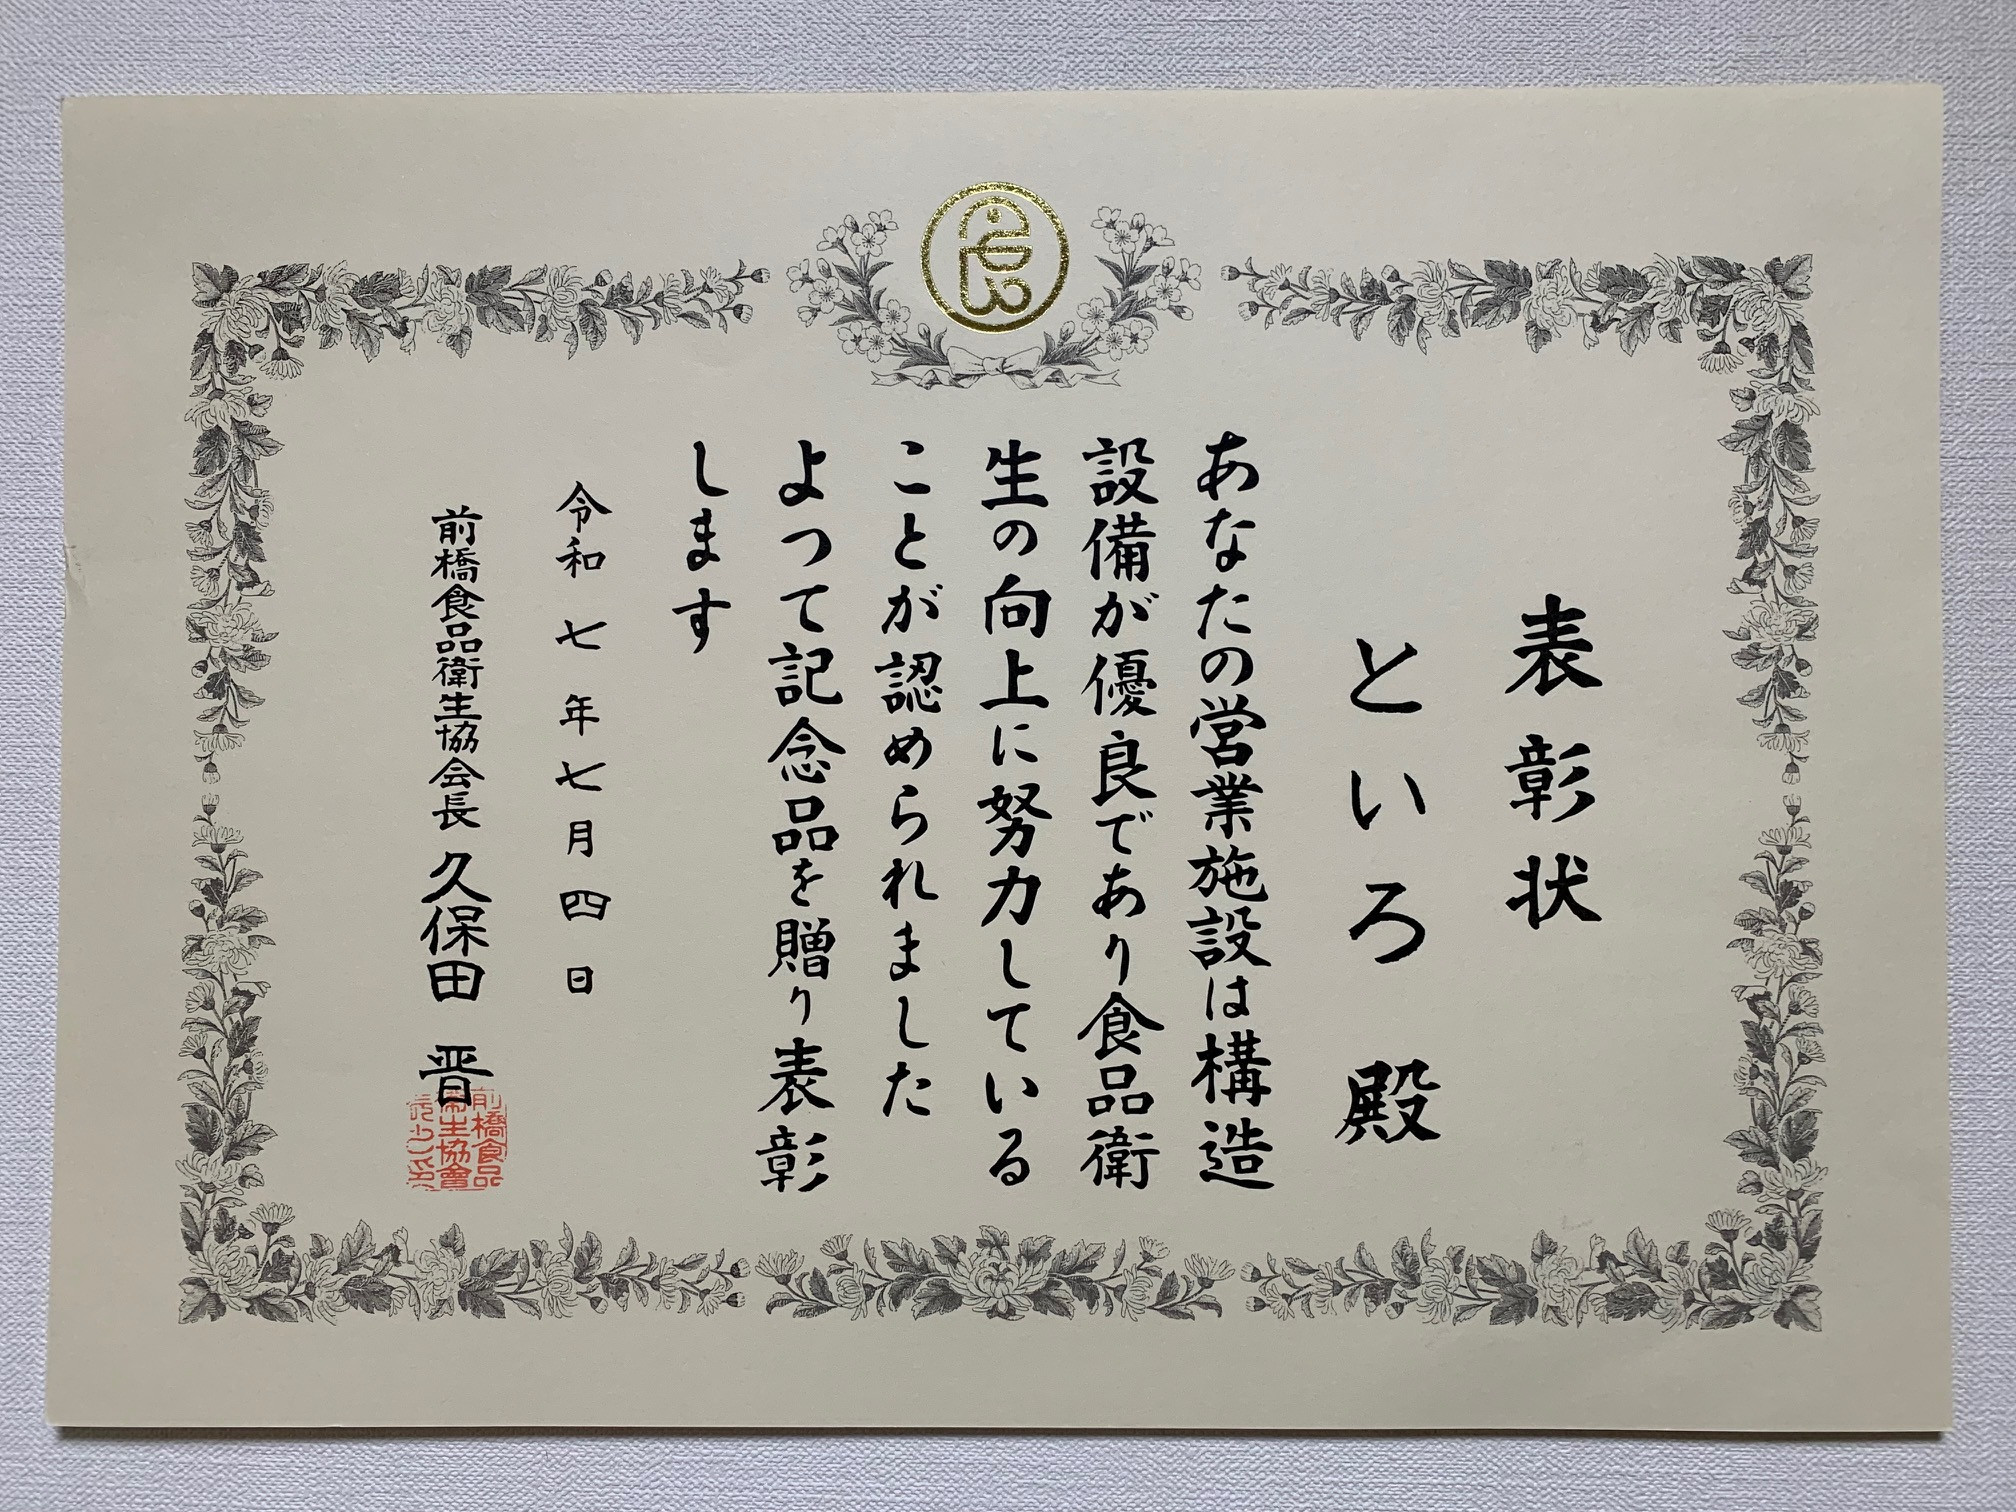 表彰状
といろ 殿
あなたの営業施設は構造
設備が優良であり食品衛
生の向上に努力している
ことが認められました
よつて記念品を贈り表彰
します
令和七年七月四日
前橋食品衛生協会長 久保田 晋
前橋食品
衛生協會
長之印